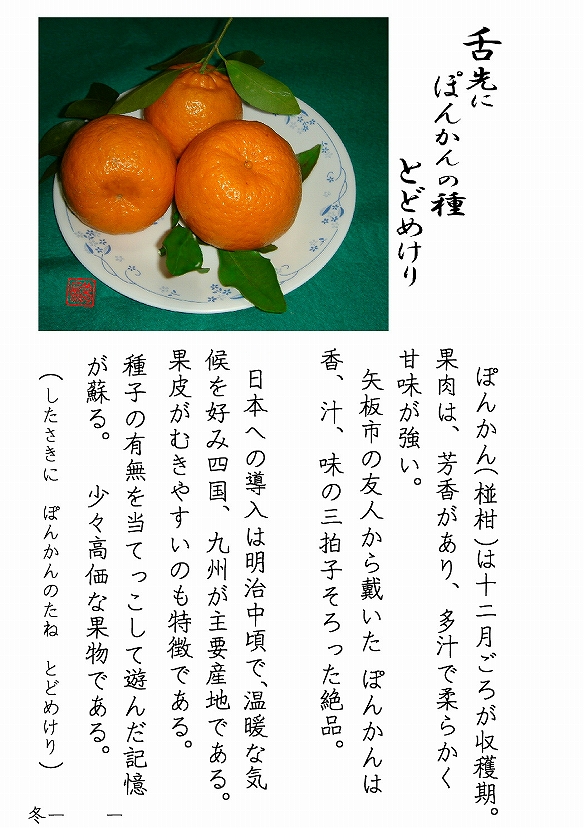 舌先に
ぽんかんの種
とどめけり
ぽんかん(椪柑)は十二月ごろが収穫期。
果肉は、芳香があり、多汁で柔らかく
甘味が強い。
矢板市の友人から戴いた ぽんかんは
香、汁、味の三拍子そろった絶品。
日本への導入は明治中頃で、温暖な気
候を好み四国、九州が主要産地である。
果皮がむきやすいのも特徴である。
種子の有無を当てっこして遊んだ記憶
が蘇る。 少々高価な果物である。
(したさきに ぽんかんのたね とどめけり)
冬一 一